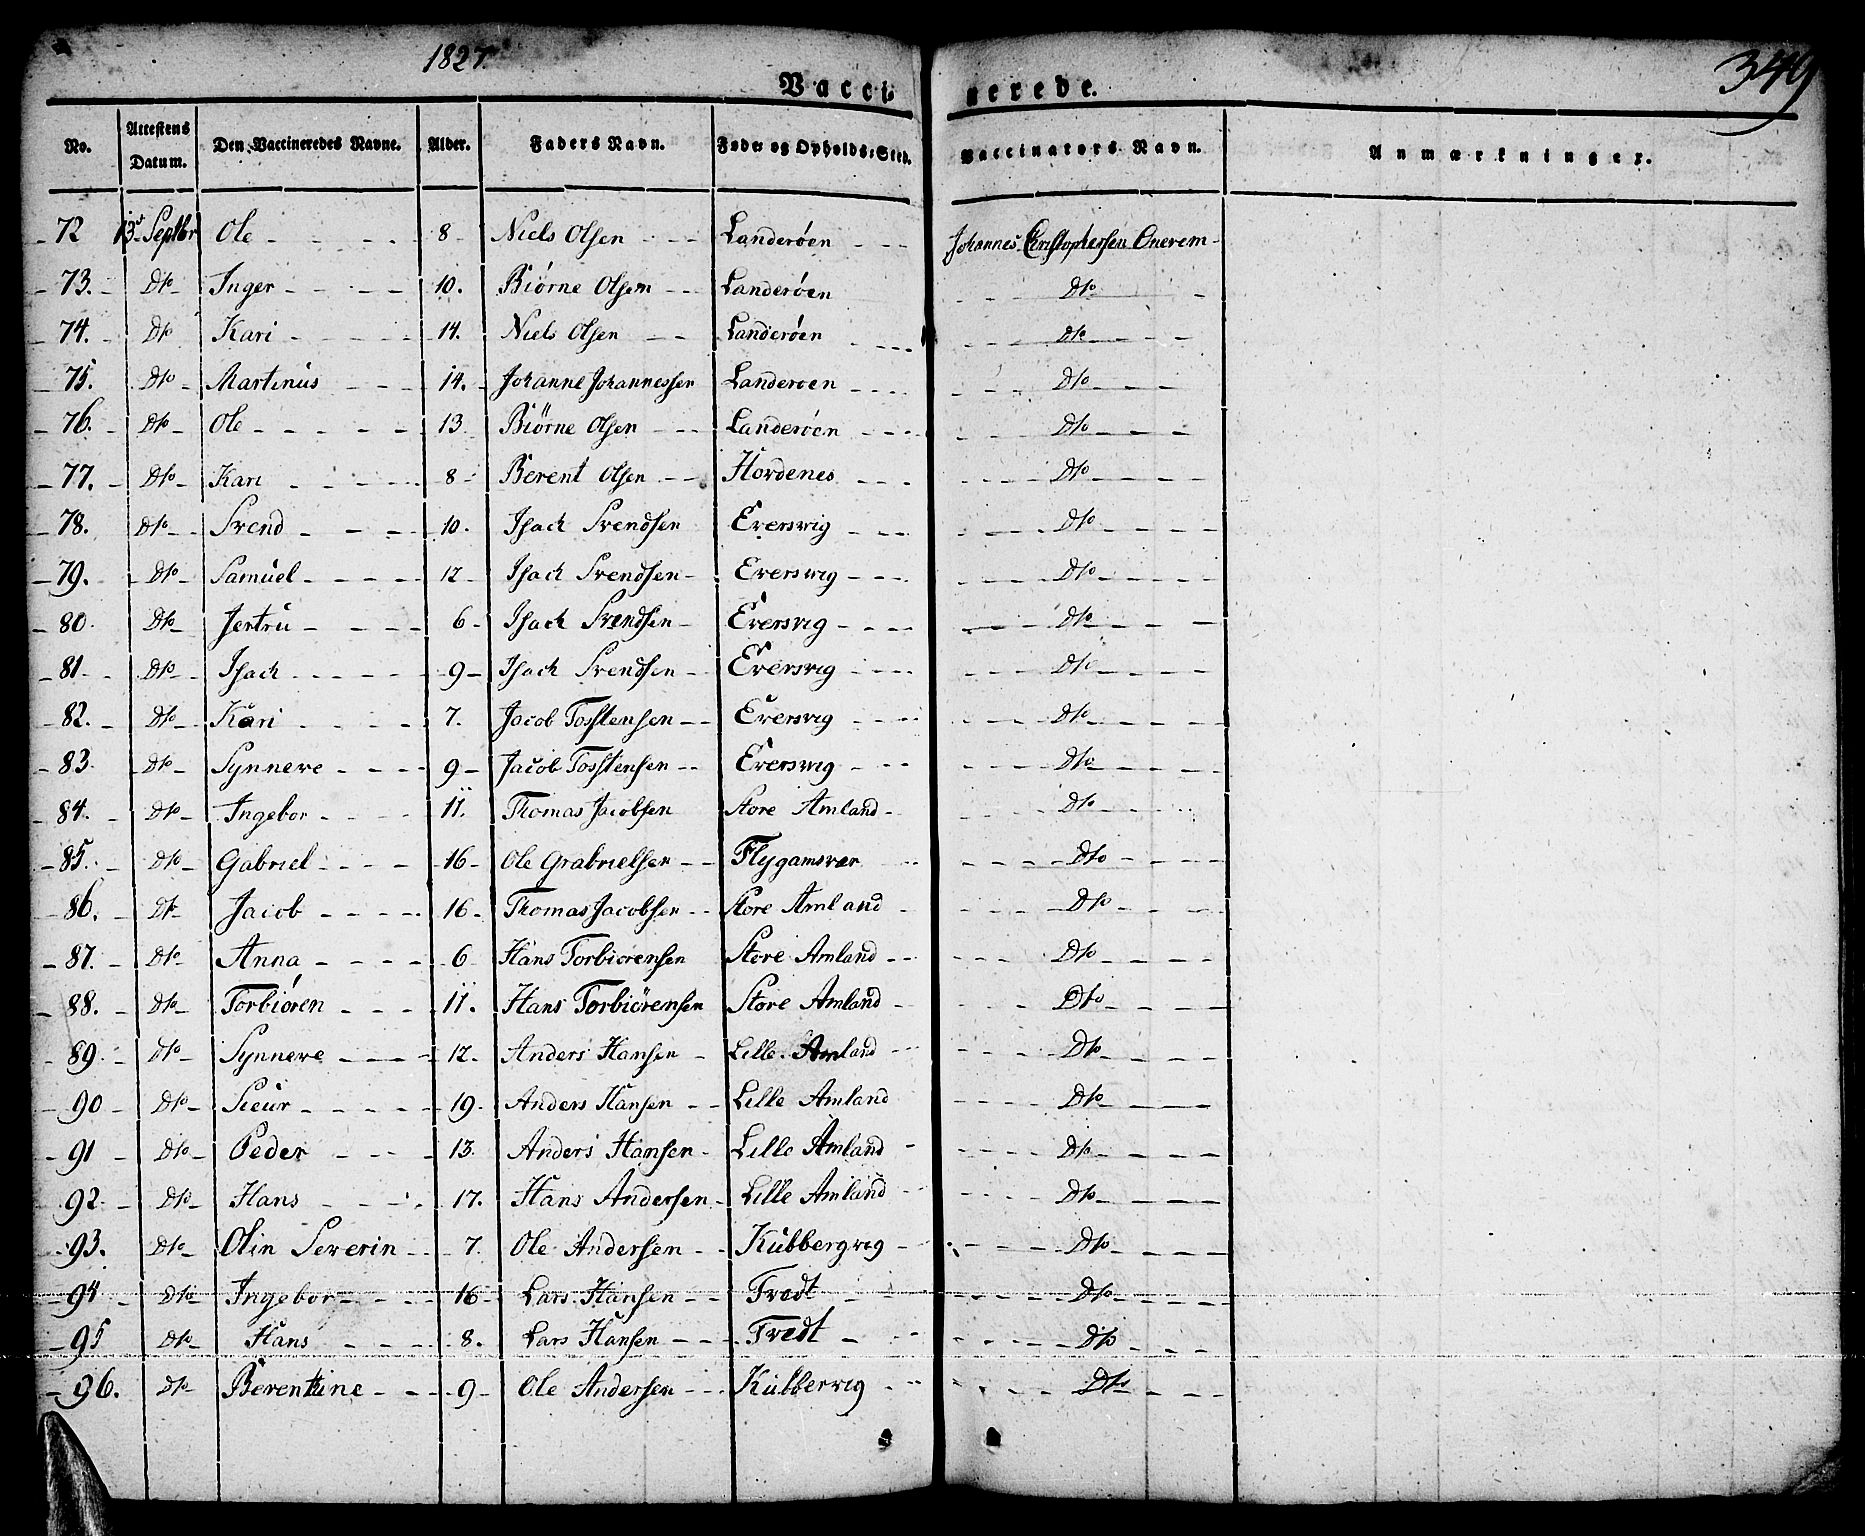 1827.
349
Vaccinerede.
No. Attestens Datum. Den Vaccineredes Navne. Alder. Faders Navn. Føde- og Opholds-Sted. Vaccinators Navn. Anmærkninger.
72 13d Septbr Ole 8 Niels Olsen Landerøen Johannes Christophersen Onerem
73. Dto Inger 10. Biørne Olsen Landerøen Dto
74. Dto Kari 14. Niels Olsen Landerøen Dto
75. Dto Martinus 14. Johanne Johannessen Landerøen Dto
76. Dto Ole 13 Biørne Olsen Landerøen Dto
77. Dto Kari 8 Berent Olsen Hordenes Dto
78. Dto Svend 10. Isach Svendsen Everswig Dto
79. Dto Samuel 12 Isach Svendsen Everswig Dto
80 Dto Jertru 6 Isach Svendsen Eversvig Dto
81 Dto Isach 9 Isach Svendsen Eversvig Dto
82. Dto Kari 7. Jacob Tosstensen Eversvig Dto
83 Dto Synneve 9 Jacob Tosstensen Everswig Dto
84. Dto Ingebor 11. Thomas Jacobsen Store Amland Dto
85. Dto Gabriel 16 Ole Grabrielsen Flygamsver Dto
86. Dto Jacob 16 Thomas Jacobsen Store Amland Dto
87. Dto Anna 6 Hans Torbiørensen Store Amland Dto
88. Dto Torbiøren 11. Hans Torbiörensen Store Amland Dto
89 Dto Synneve 12. Anders Hansen Lille Amland Dto
90 Dto Sieur 19. Anders Hansen Lille Amland Dto
91 Dto Peder 13. Anders Hansen Lille Amland Dto
92 Dto Hans 17. Hans Andersen Lille Amland Dto
93. Dto Olin Severin 7. Ole Andersen Kubbergvig Dto
94 Dto Ingebor 16 Lars Hansen Tredt Dto
95 Dto Hans 8. Lars Hansen Tredt Dto
96. Dto Berenthine 9 Ole Andersen Kubbervig Dto